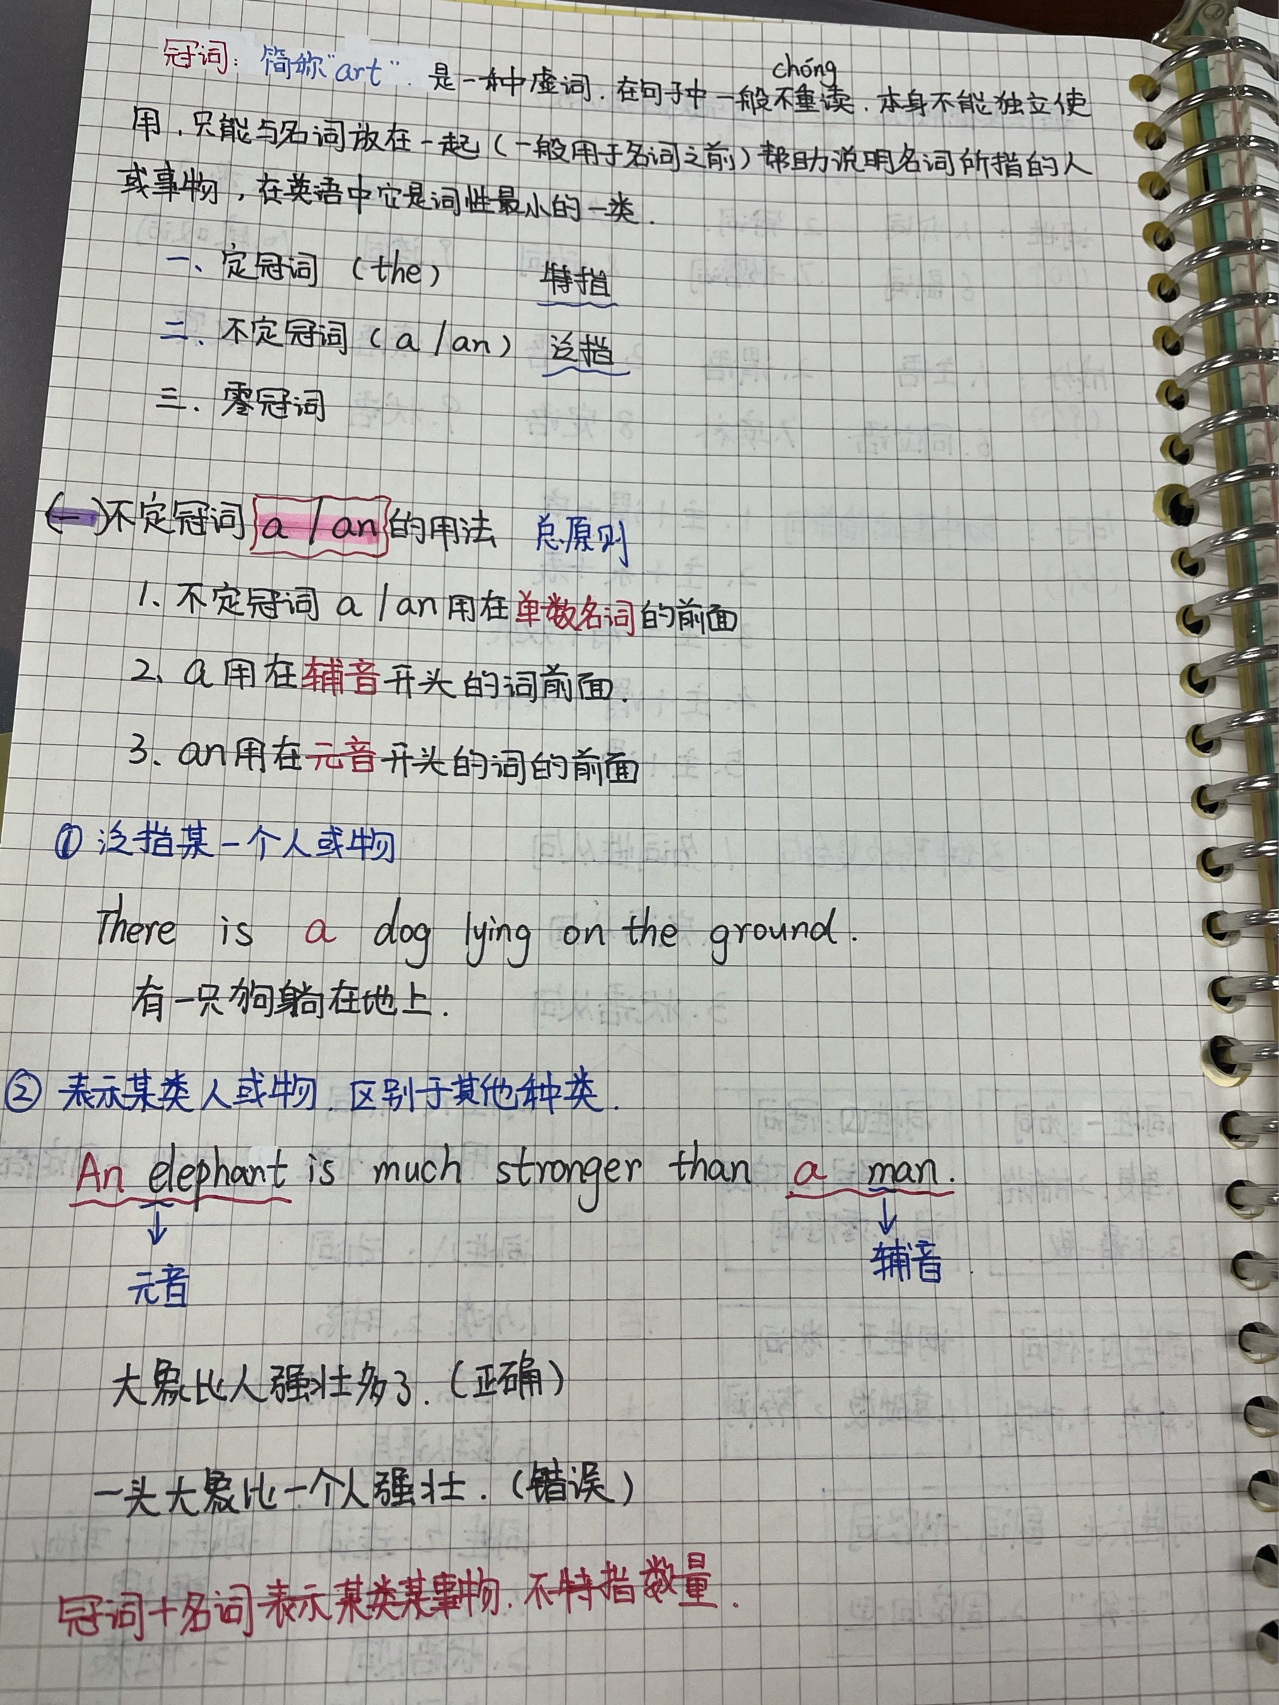 冠词：简称"art". 是一种虚词. 在句子中一般不重读. 本身不能独立使
chóng
用. 只能与名词放在一起(一般用于名词之前)帮助说明名词所指的人
或事物, 在英语中它是词性最小的一类.
一、定冠词 (the) 特指
二、不定冠词 (a/an) 泛指
三. 零冠词
(一)不定冠词 a/an 的用法 总原则
1、不定冠词 a/an 用在单数名词的前面
2、a 用在辅音开头的词前面.
3、an用在元音开头的词的前面
① 泛指某一个人或物
There is a dog lying on the ground.
有一只狗躺在地上.
② 表示某类人或物. 区别于其他种类.
An elephant is much stronger than a man.
元音 辅音
大象比人强壮多了. (正确)
一头大象比一个人强壮. (错误)
冠词+名词表示某类某事物. 不特指数量.